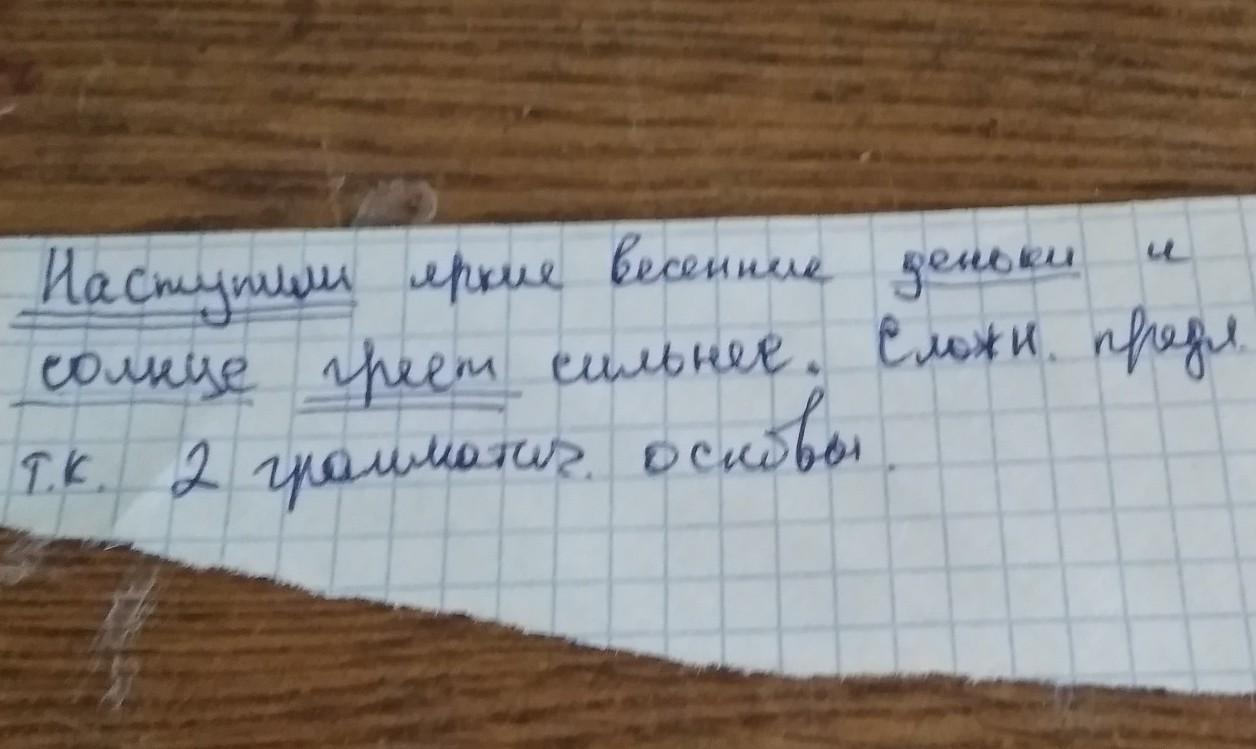 Наступили яркие весенние деньки и
солнце греет сильнее. Сложн. предл.
т.к. 2 грамматич. основы.